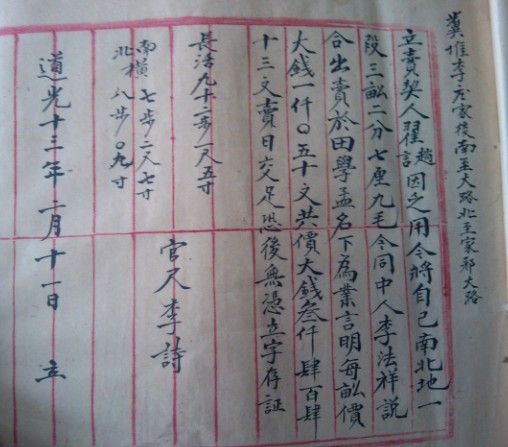 冀堆李庄家後南至大路北至家郝大路
立賣契人翟趙言因乏用今將自己南北地一
段三畝二分七厘九毛今同中人李法祥説
合出賣於田學孟名下為業言明每畝價
大錢一仟〇五十文共價大錢叁仟肆百肆
十三文賣日交足恐後無憑立字存証
官尺李詩
長活九十二步一尺五寸
南横七步二尺七寸
北横八步〇九寸
道光十三年二月十一日 立